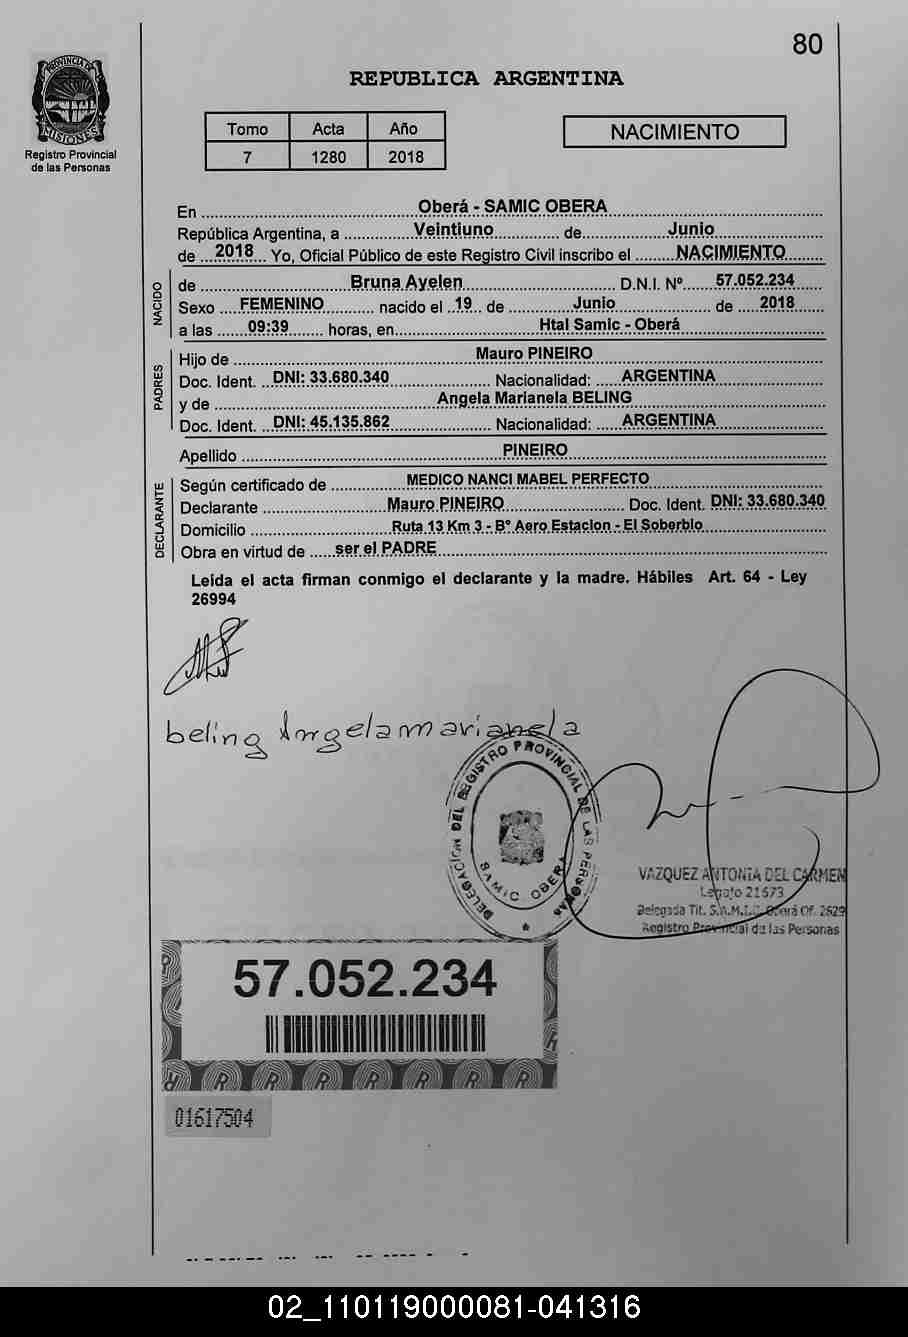 80
REPUBLICA ARGENTINA
PROVINCIA DE
MISIONES
Registro Provincial
de las Personas
Tomo Acta Año
7 1280 2018
NACIMIENTO
En Oberá - SAMIC OBERA
República Argentina, a Veintiuno de Junio
de 2018 Yo, Oficial Público de este Registro Civil inscribo el NACIMIENTO
NACIDO
de Bruna Ayelen D.N.I. Nº 57.052.234
Sexo FEMENINO nacido el 19 de Junio de 2018
a las 09:39 horas, en Htal Samic - Oberá
PADRES
Hijo de Mauro PINEIRO
Doc. Ident. DNI: 33.680.340 Nacionalidad: ARGENTINA
y de Angela Marianela BELING
Doc. Ident. DNI: 45.135.862 Nacionalidad: ARGENTINA
Apellido PINEIRO
DECLARANTE
Según certificado de MEDICO NANCI MABEL PERFECTO
Declarante Mauro PINEIRO Doc. Ident. DNI: 33.680.340
Domicilio Ruta 13 Km 3 - Bº Aero Estacion - El Soberbio
Obra en virtud de ser el PADRE
Leida el acta firman conmigo el declarante y la madre. Hábiles Art. 64 - Ley
26994
beling Angela marianela
DELEGACION DEL REGISTRO PROVINCIAL DE LAS PERSONAS
SAMIC OBERA
VAZQUEZ ANTONIA DEL CARMEN
Legajo 21673
Delegada Tit. S.A.M.I.C. Oberá Of. 2629
Registro Provincial de las Personas
57.052.234
01617504
02_110119000081-041316